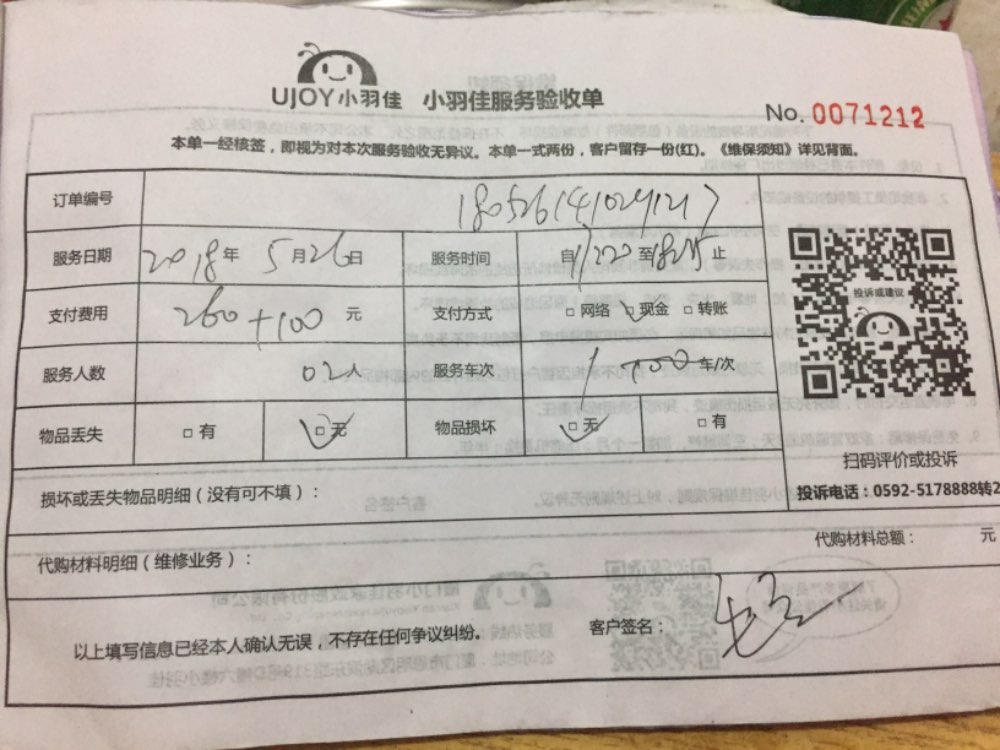 UJOY小羽佳 小羽佳服务验收单
No. 0071212
本单一经核签，即视为对本次服务验收无异议。本单一式两份，客户留存一份(红)。《维保须知》详见背面。
订单编号
服务日期 2018年 5月26日 服务时间 自 至 止
支付费用 260+100 元 支付方式 □网络 □现金 □转账
投诉或建议
服务人数 02人 服务车次 1 车/次
物品丢失 □有 □无 物品损坏 □无 □有
扫码评价或投诉
投诉电话：0592-5178888转2
损坏或丢失物品明细（没有可不填）：
代购材料明细（维修业务）： 代购材料总额： 元
以上填写信息已经本人确认无误，不存在任何争议纠纷。 客户签名：